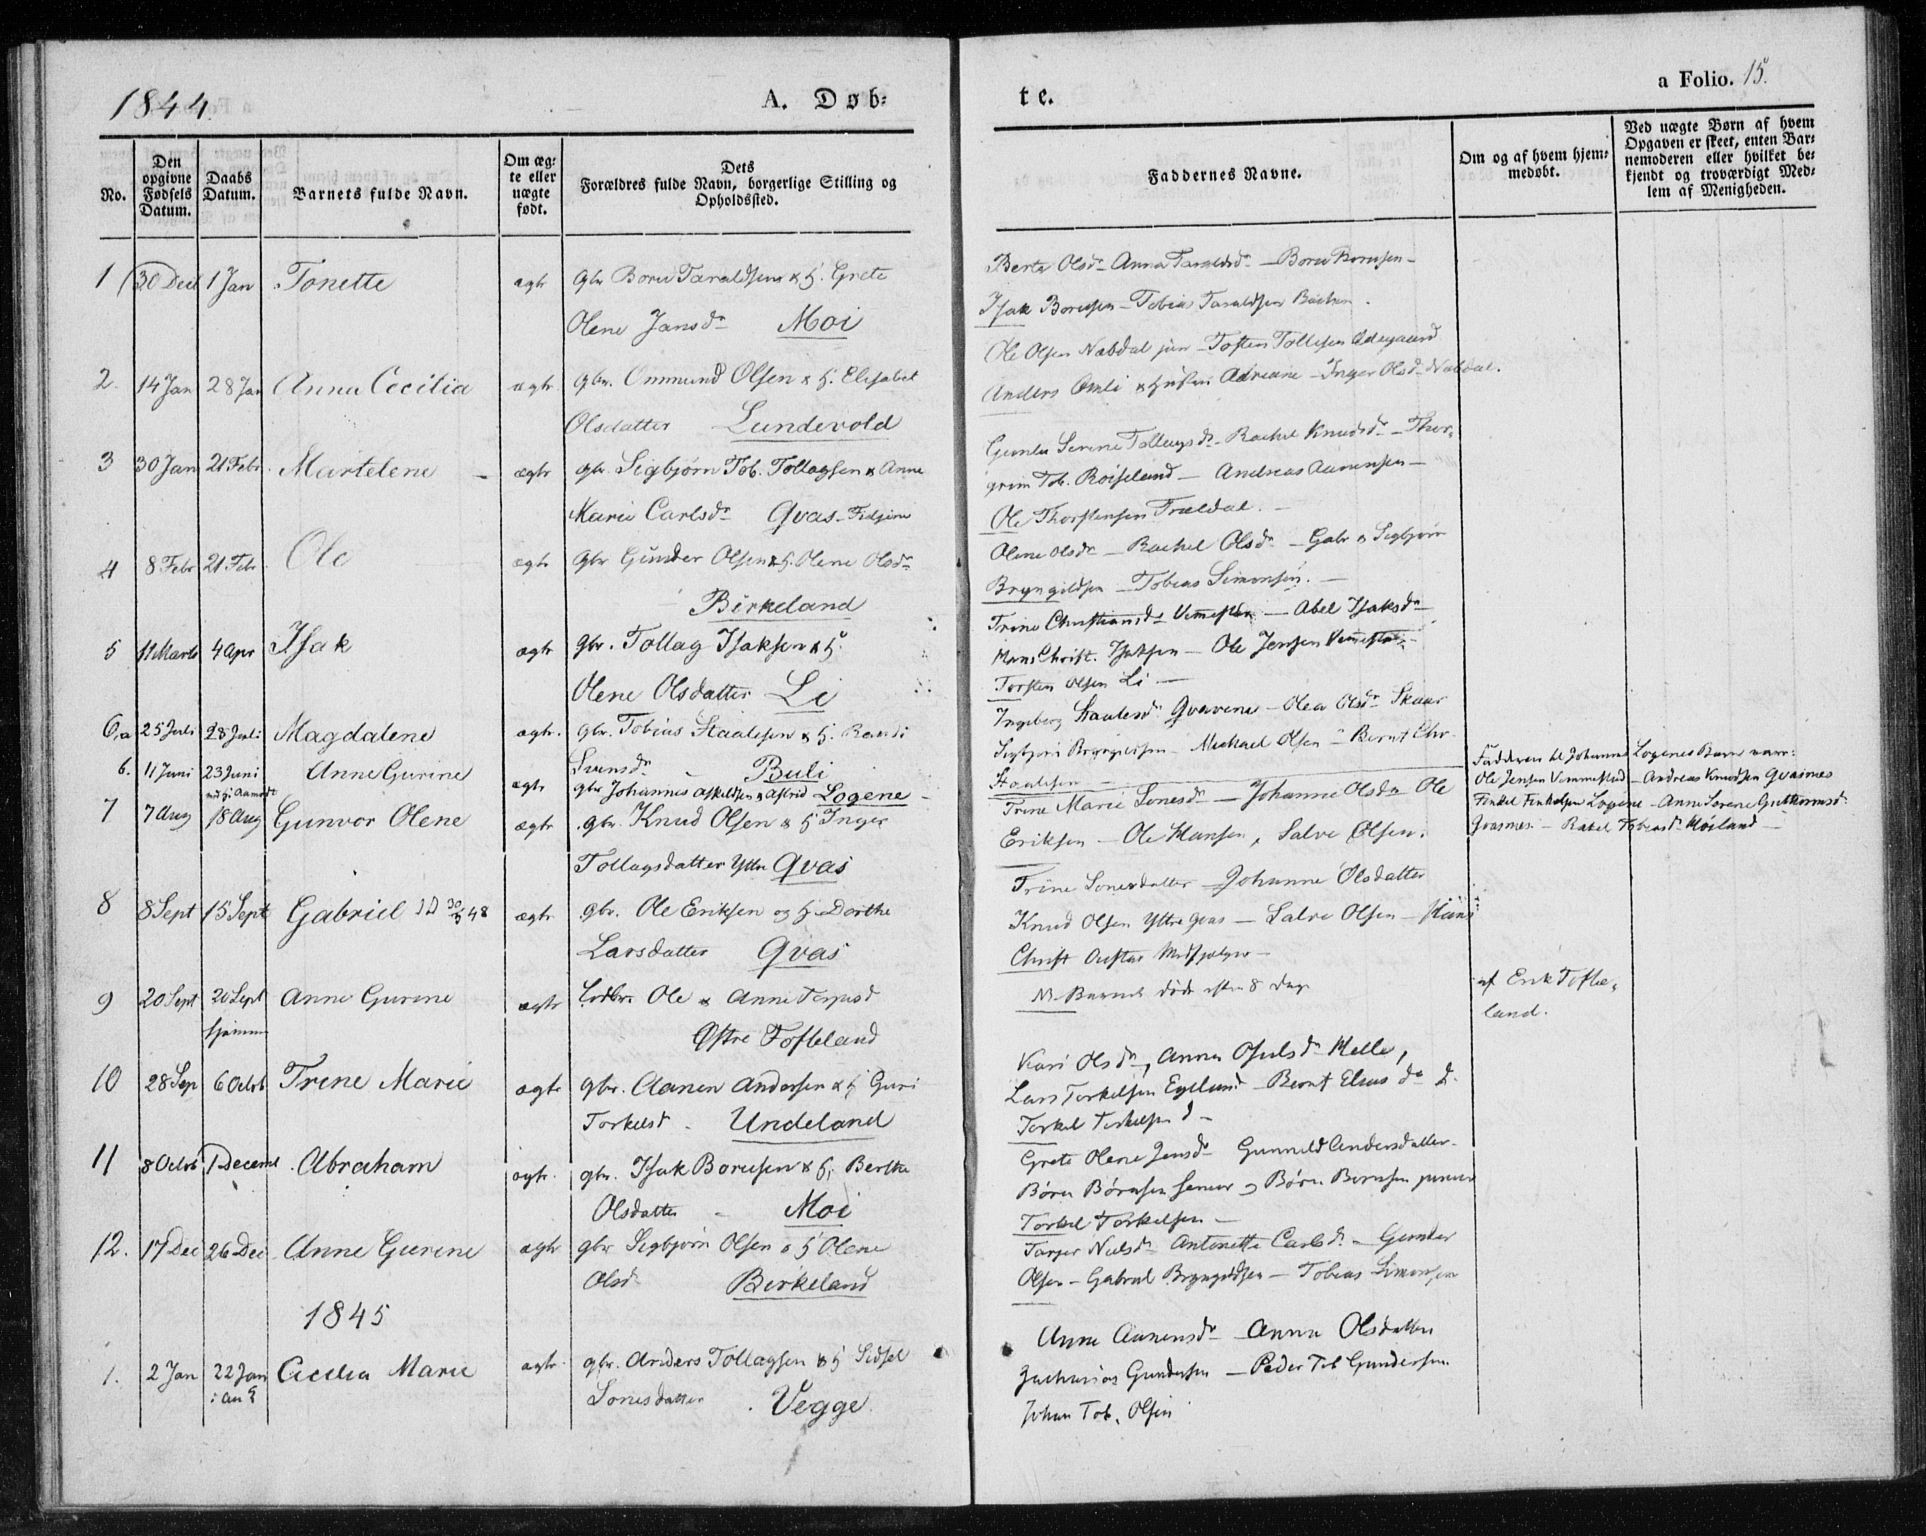 1844
A. Døb-
te.
a Folio. 15.
No.
Den opgivne Fødsels Datum.
Daabs Datum.
Barnets fulde Navn.
Om ægte eller nægte født.
Dets Forældres fulde Navn, borgerlige Stilling og Opholdssted.
Faddernes Navne.
Om og af hvem hjemmedøbt.
Ved nægte Børn af hvem Opgaven er skeet, enten Barnemoderen eller hvilket bekjendt og troværdigt Medlem af Menigheden.
1 30 Dec 1 Jan Tonette ægte gbr Boru Taraldsen & h. Grete
Olene Jansdr Moi
Berte Olsdr Anna Taraldsdr - Boru Borusen -
Isak Borusen - Tobias Taraldsen
2. 14 Jan 28 Jan Anna Cecilia ægte gbr. Ommund Olsen & h. Elisabet
Olsdatter Lundevold
Ole Olsen Nabdal jun - Tosten Tollefsen Ødegaard
Anders Omli & Adriane - Inger Olsdr Nabdal.
3 30 Jan 21 Febr. Martelene - ægte gbr. Sigbjørn Tob. Tollagsen & Anne
Marie Carlsdr Qvas -
Serine Tollagsdr - Rachel Knudsdr - Thor-
grim Tob. Røiseland - Andreas Aanensen -
Ole Thorstensen Trældal. -
4 8 Febr 21 Febr. Ole ægte gbr Gunder Olsen & h. Olene Olsdr
Birkeland
Olene Olsdr - Rachel Olsdr - Gabr & Sigbjørn
Bryngildsen - Tobias Simonsen. -
5 11 Marts 4 Apr Isak ægte gbr. Tollag Isaksen & h.
Olene Olsdatter Li
Trine Christiansdr Vemestad - Abel Isaksdr
Hans Christ. Isaksen - Ole Jensen Vemestad -
Torsten Olsen Li -
6,a 25 Juli 28 Juli Magdalene ægte. gbr. Tobias Staalesen & h. Randi
Svensdr - Buli
Ingeborg Staalesdr Qvavene - Olea Olsdr Skaar
Sigbjørn Bryngildsen - Michael Olsen - Bernt Chr
Staalesen -
6. 11 Juni 23 Juni Anne Gurine ægte gbr Johannes Askildsen & Astrid Logene -
Fadderne til Johannes Logenes Barn vare:
Ole Jensen Vemmestad - Andreas Knudsen Qvasnes
Finkel Finkelsen Logene - Anne Serene Guttormsdr
Qvasnes. - Rakel Tobiasdr Høiland -
7 7 Aug 18 Aug Gunvor Olene ægte gbr. Knud Olsen & h Inger
Tollagsdatter Yttre Qvas
Trine Marie Sonesdr - Johanne Olsdr Ole
Eriksen - Ole Hansen, Salve Olsen.
8 8 Sept 15 Sept Gabriel ægte gbr. Ole Eriksen og h. Dorthe
Larsdatter Qvas
Trine Sonesdatter Johanne Olsdatter
Knud Olsen Yttre Qvas - Salve Olsen - Hans
Christ
9 20 Sept 20 Sept hjemme Anne Gurine ægte Ole & Anne Terjesd
Østre Tofteland
Barnet døde efter 8 Dage
af Erik Tofte-
land.
10 28 Sep 6 Octob Trine Marie ægte gbr. Aanen Andersen & h Guri
Torkelsd. Undeland
Kari Olsdr, Anna Osulsdr Helle,
Lars Torkelsen Egelund - Bernt
Torkel Torkelsen d -
11 8 Octob 1 Decemb. Abraham ægte. gbr. Isak Borusen & h. Berthe
Olsdatter - Moi
Grete Olene Jensdr Gunnild Andersdatter -
Børu Børusen senior og Børu Borusen junior
Torkel Torkelsen -
12. 17 Dec 26 Dec Anne Gurine ægte gbr Sigbjørn Olsen & h Olene
Olsd Birkeland
Targer Nielsdr Antonette Carlsdr - Gunder
Olsen - Gabriel Bryngildsen - Tobias Simonsen
1845
1. 2 Jan 22 Jan Cecilia Marie ægte. gbr. Anders Tollagsen & h Sidsel
Sonesdatter. Vegge
Anne Aanensdr Anna Olsdatter
Zacharias Gundersen - Peder Tob Gundersen
Johan Tob. Olsen